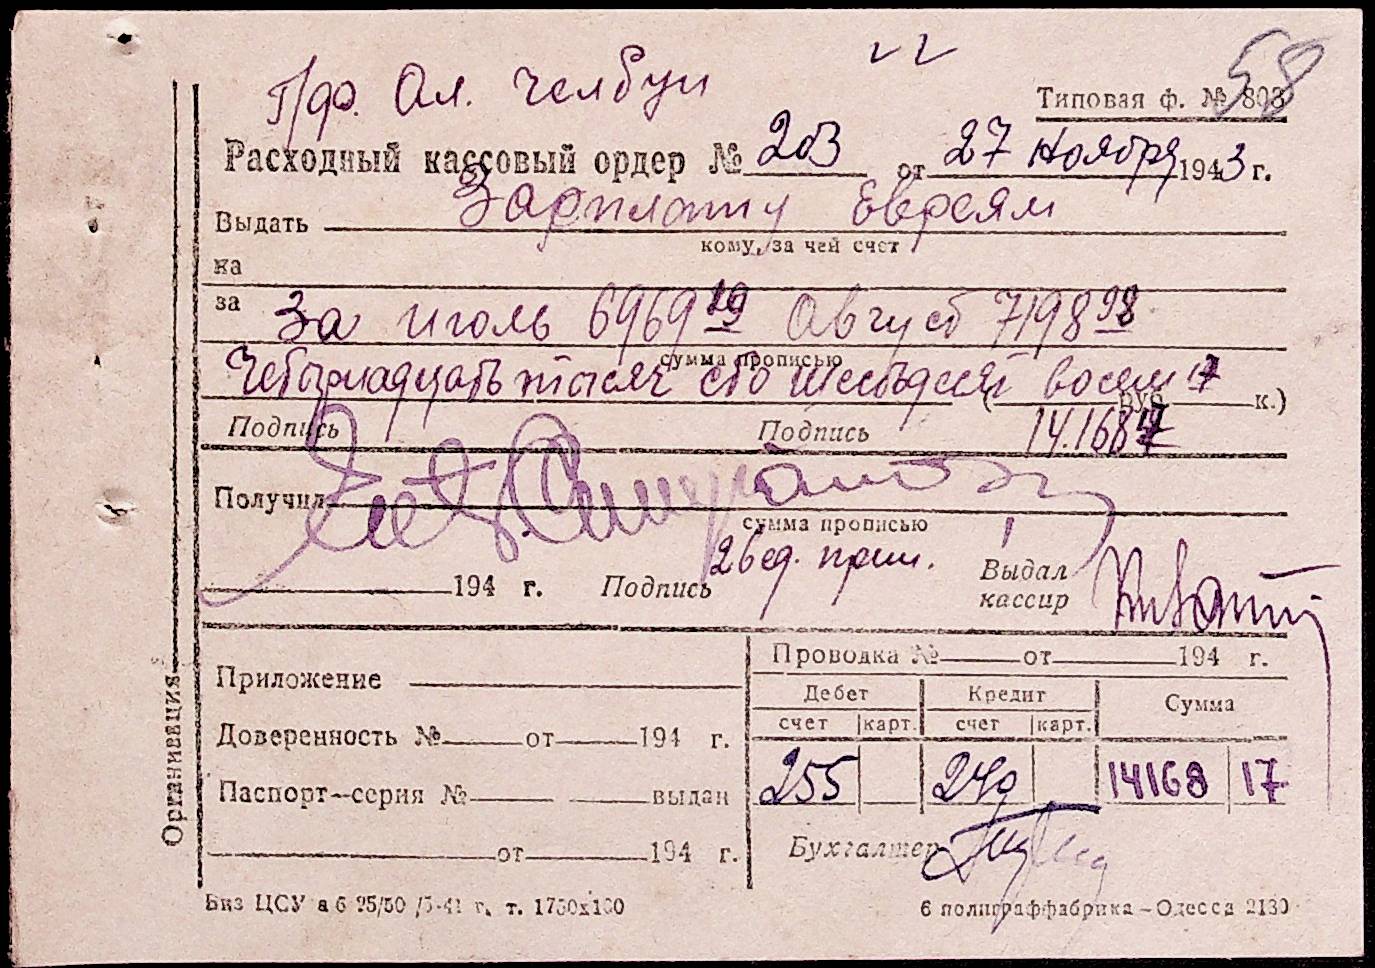 58
П/ф. Ал. Челбуи
Типовая ф. № 803
Расходный кассовый ордер № 203 от 27 ноября 1943 г.
Выдать Зарплату Евреям
кому, за чей счет
на
за За июль 6969 19 Август 7198 98
сумма прописью
Четырнадцать тысяч сто шестьдесят восем 17 ( руб. к.)
Подпись Подпись 14.168 17
Получил
сумма прописью
26 ед. прил.
194 г. Подпись Выдал кассир
Организация
Приложение
Доверенность № от 194 г.
Паспорт-серия № выдан
от 194 г.
Проводка № от 194 г.
Дебет Кредит Сумма
счет карт. счет карт.
255 240 14168 17
Бухгалтер
Виз ЦСУ а 6 25/50 /5-41 г. т. 1750х100
6 полиграффабрика - Одесса 2130